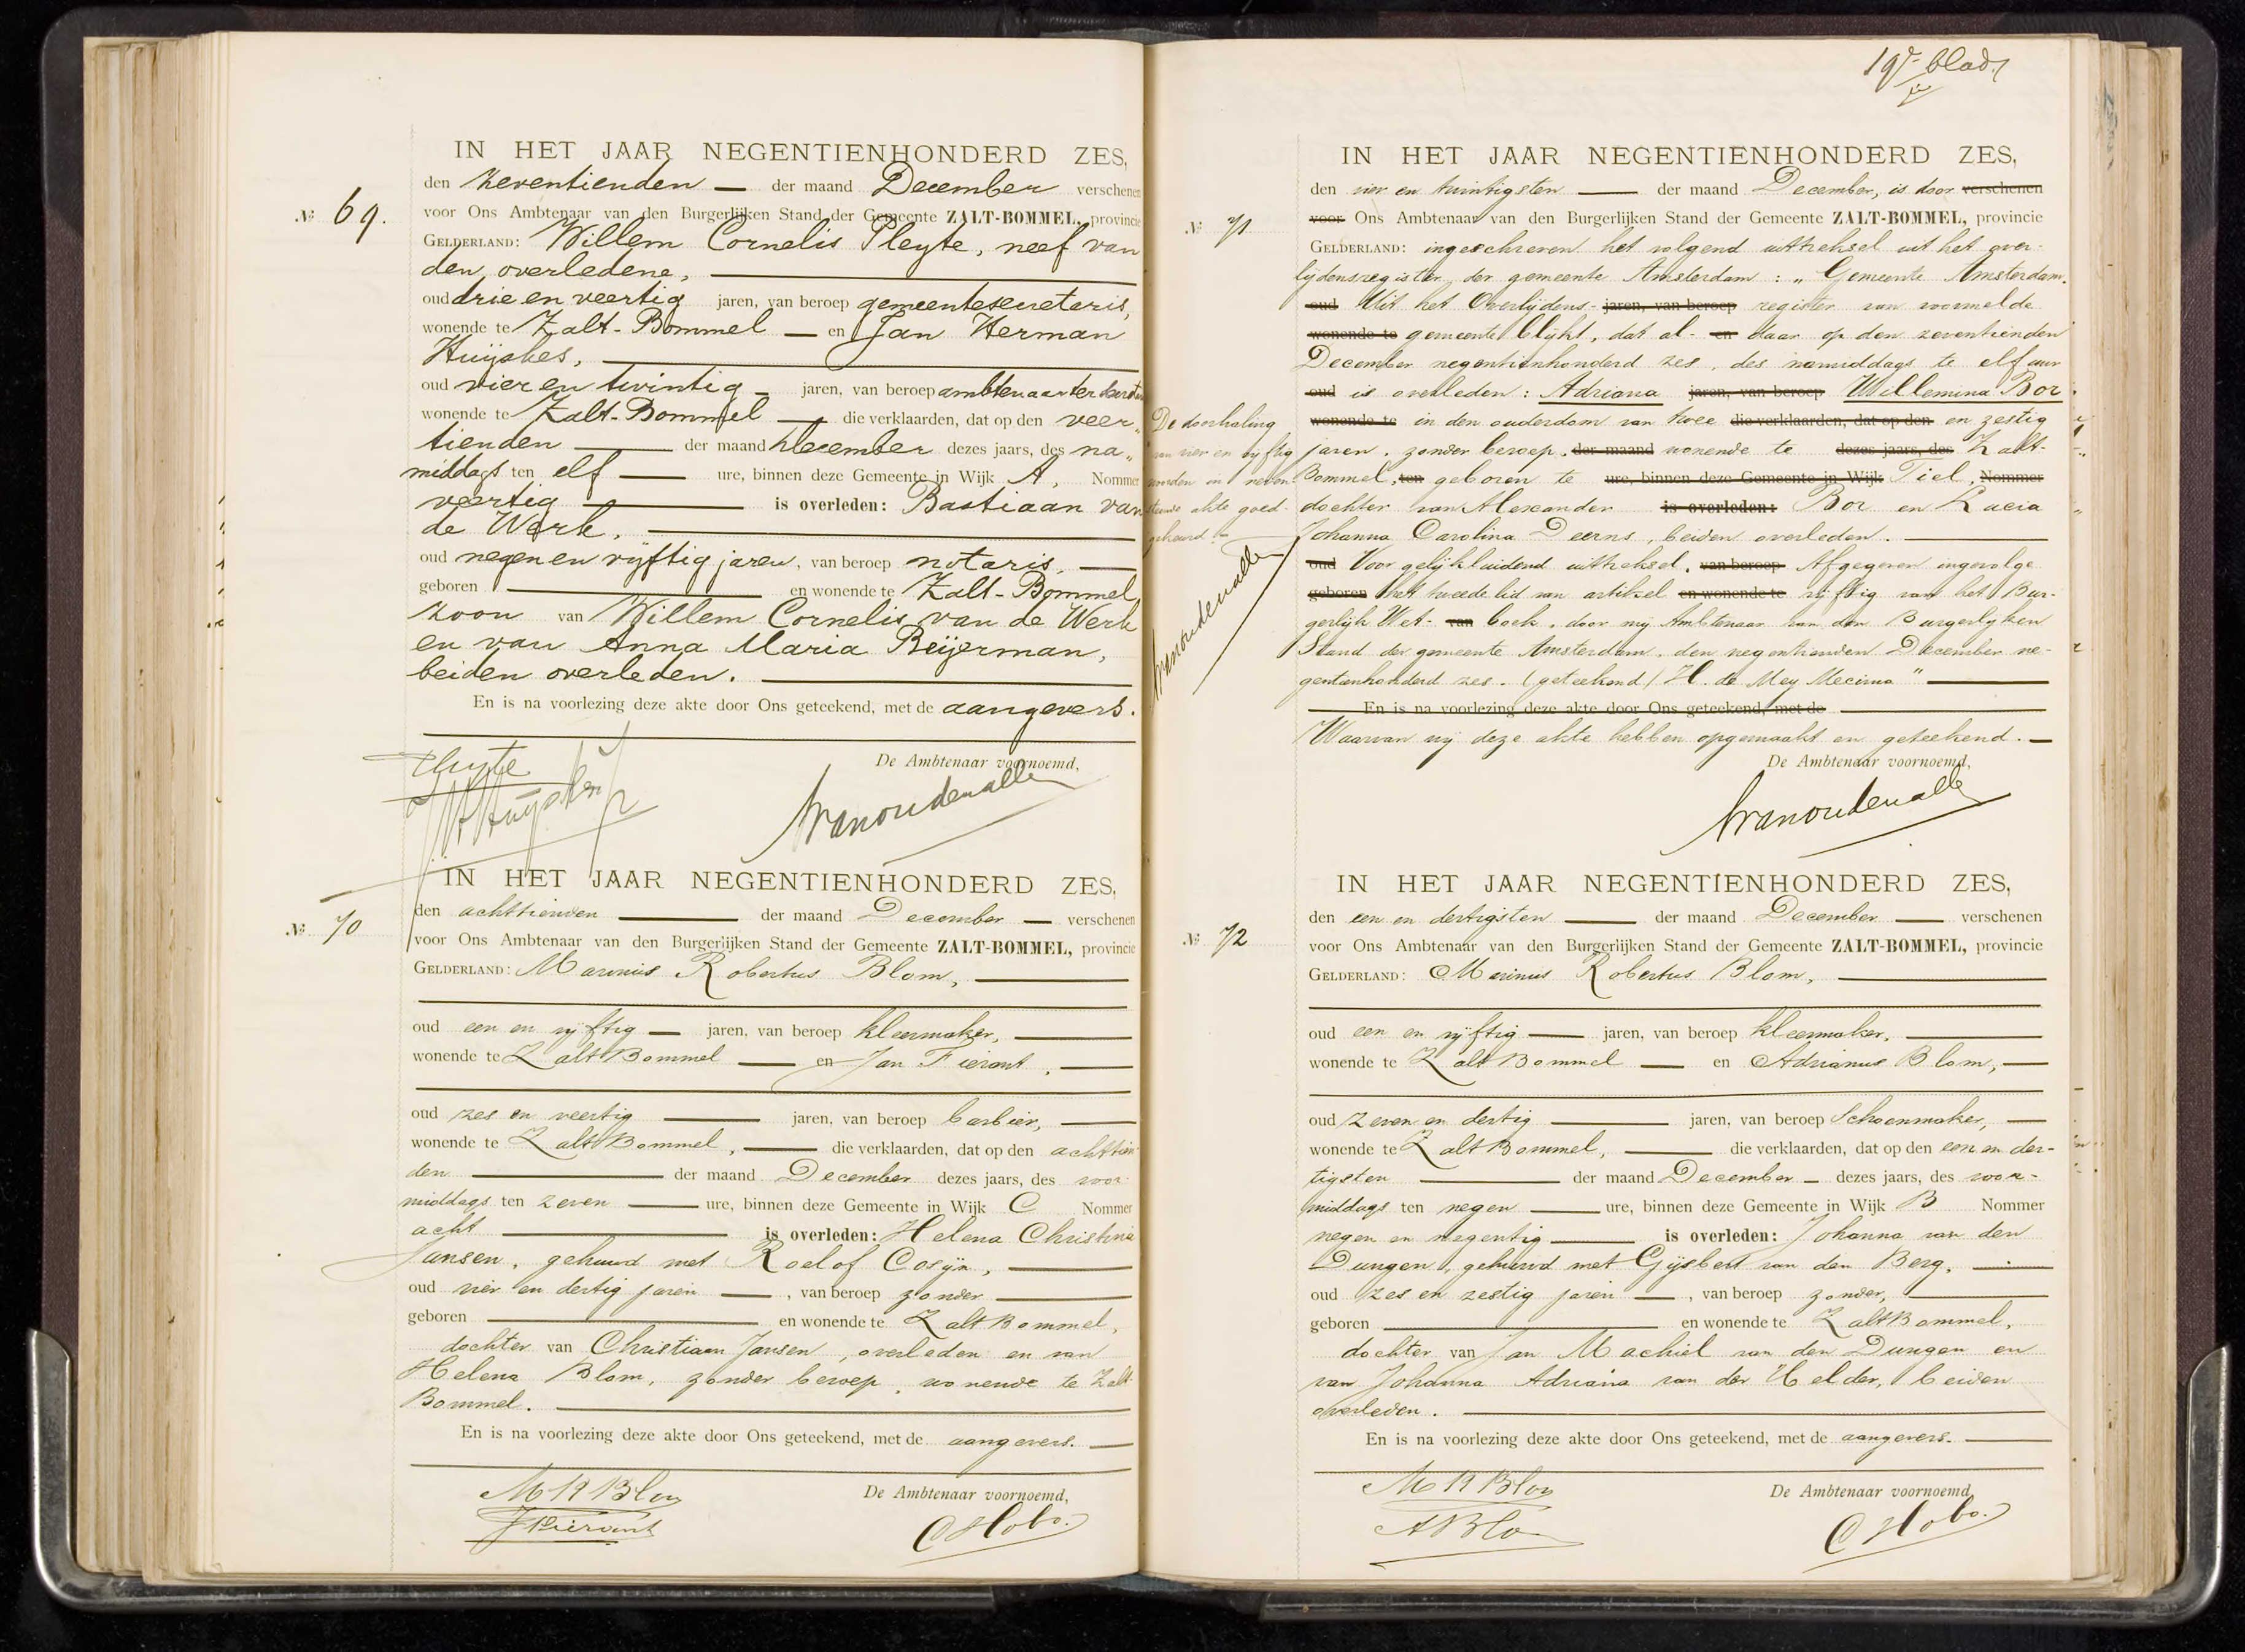 IN HET JAAR NEGENTIENHONDERD ZES,
den zeventienden — der maand December verschenen
№ 69. voor Ons Ambtenaar van den Burgerlijken Stand der Gemeente ZALT-BOMMEL, provincie
GELDERLAND: Willem Cornelis Pleyte, neef van
den overledene,
oud drie en veertig jaren, van beroep gemeentesecretaris,
wonende te Zalt-Bommel — en Jan Herman
Huijskes,
oud vier en twintig — jaren, van beroep ambtenaar ter
wonende te Zalt-Bommel — die verklaarden, dat op den veer„
tienden — der maand December dezes jaars, des na„
middags ten elf — ure, binnen deze Gemeente in Wijk A, Nommer
veertig — is overleden: Bastiaan van
de Werk,
oud negen en vijftig jaren, van beroep notaris,
geboren — en wonende te Zalt-Bommel,
zoon van Willem Cornelis van de Werk
en van Anna Maria Beijerman,
beiden overleden.
En is na voorlezing deze akte door Ons geteekend, met de aangevers.
Pleyte
De Ambtenaar voornoemd,
JHHuijskes
Avanoudenallen
IN HET JAAR NEGENTIENHONDERD ZES,
den achttienden — der maand December — verschenen
№ 70 voor Ons Ambtenaar van den Burgerlijken Stand der Gemeente ZALT-BOMMEL, provincie
GELDERLAND: Marinus Robertus Blom,
oud een en vijftig — jaren, van beroep kleermaker,
wonende te ZaltBommel — en Jan Fierant,
oud zes en veertig — jaren, van beroep barbier,
wonende te ZaltBommel, — die verklaarden, dat op den achttien
den — der maand December dezes jaars, des voor
middags ten zeven — ure, binnen deze Gemeente in Wijk C Nommer
acht — is overleden: Helena Christina
Jansen, gehuwd met Roelof Cosijn,
oud vier en dertig jaren —, van beroep zonder
geboren — en wonende te ZaltBommel,
dochter van Christiaan Jansen, overleden en van
Helena Blom, zonder beroep, wonende te Zalt
Bommel.
En is na voorlezing deze akte door Ons geteekend, met de aangevers.
M R Blom
De Ambtenaar voornoemd,
JFierant
C Hobo.
19e blad.
IN HET JAAR NEGENTIENHONDERD ZES,
den vier en twintigsten — der maand December, is door verschenen
№ 71 voor Ons Ambtenaar van den Burgerlijken Stand der Gemeente ZALT-BOMMEL, provincie
GELDERLAND: ingeschreven het volgend uittreksel uit het over-
lijdensregister der gemeente Amsterdam: „Gemeente Amsterdam.
oud Uit het Overlijdens- jaren, van beroep register van voormelde
wonende te gemeente blijkt, dat al- en daar op den zeventienden
December negentienhonderd zes, des namiddags te elf uur
oud is overleden: Adriana jaren, van beroep Willemina Bor
wonende te in den ouderdom van twee die verklaarden, dat op den en zestig
jaren, zonder beroep, der maand wonende te dezes jaars, des Zalt-
Bommel, ten geboren te ure, binnen deze Gemeente in Wijk Tiel, Nommer
dochter van Alexander is overleden: Bor en Lucia
Johanna Carolina Deerns, beiden overleden.
oud Voor gelijkluidend uittreksel, van beroep Afgegeven ingevolge
geboren het tweede lid van artikel en wonende te vijftig van het Bur-
gerlijk Wet- van boek, door mij Ambtenaar van den Burgerlijken
Stand der gemeente Amsterdam, den negentienden December ne-
gentienhonderd zes. (geteekend) H. de Mey Mecima"
En is na voorlezing deze akte door Ons geteekend, met de
Waarvan wij deze akte hebben opgemaakt en geteekend. —
De Ambtenaar voornoemd,
Avanoudenallen
De doorhaling
van vier en vijftig
woorden in neven-
staande akte goed-
gekeurd.
Avanoudenallen
IN HET JAAR NEGENTIENHONDERD ZES,
den een en dertigsten — der maand December — verschenen
№ 72 voor Ons Ambtenaar van den Burgerlijken Stand der Gemeente ZALT-BOMMEL, provincie
GELDERLAND: Marinus Robertus Blom,
oud een en vijftig — jaren, van beroep kleermaker,
wonende te ZaltBommel — en Adrianus Blom,
oud zeven en dertig — jaren, van beroep Schoenmaker,
wonende te ZaltBommel, — die verklaarden, dat op den een en der-
tigsten — der maand December — dezes jaars, des voor-
middags ten negen — ure, binnen deze Gemeente in Wijk B Nommer
negen en negentig — is overleden: Johanna van den
Dungen, gehuwd met Gijsbert van den Berg,
oud zes en zestig jaren —, van beroep zonder,
geboren — en wonende te ZaltBommel,
dochter van Jan Machiel van den Dungen en
van Johanna Adriana van der Helder, beiden
overleden.
En is na voorlezing deze akte door Ons geteekend, met de aangevers.
M R Blom
De Ambtenaar voornoemd,
A Blo
C Hobo.